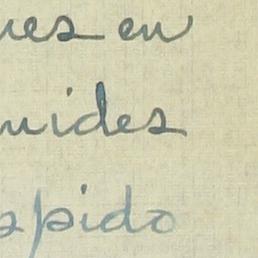 ues en
uides
spido